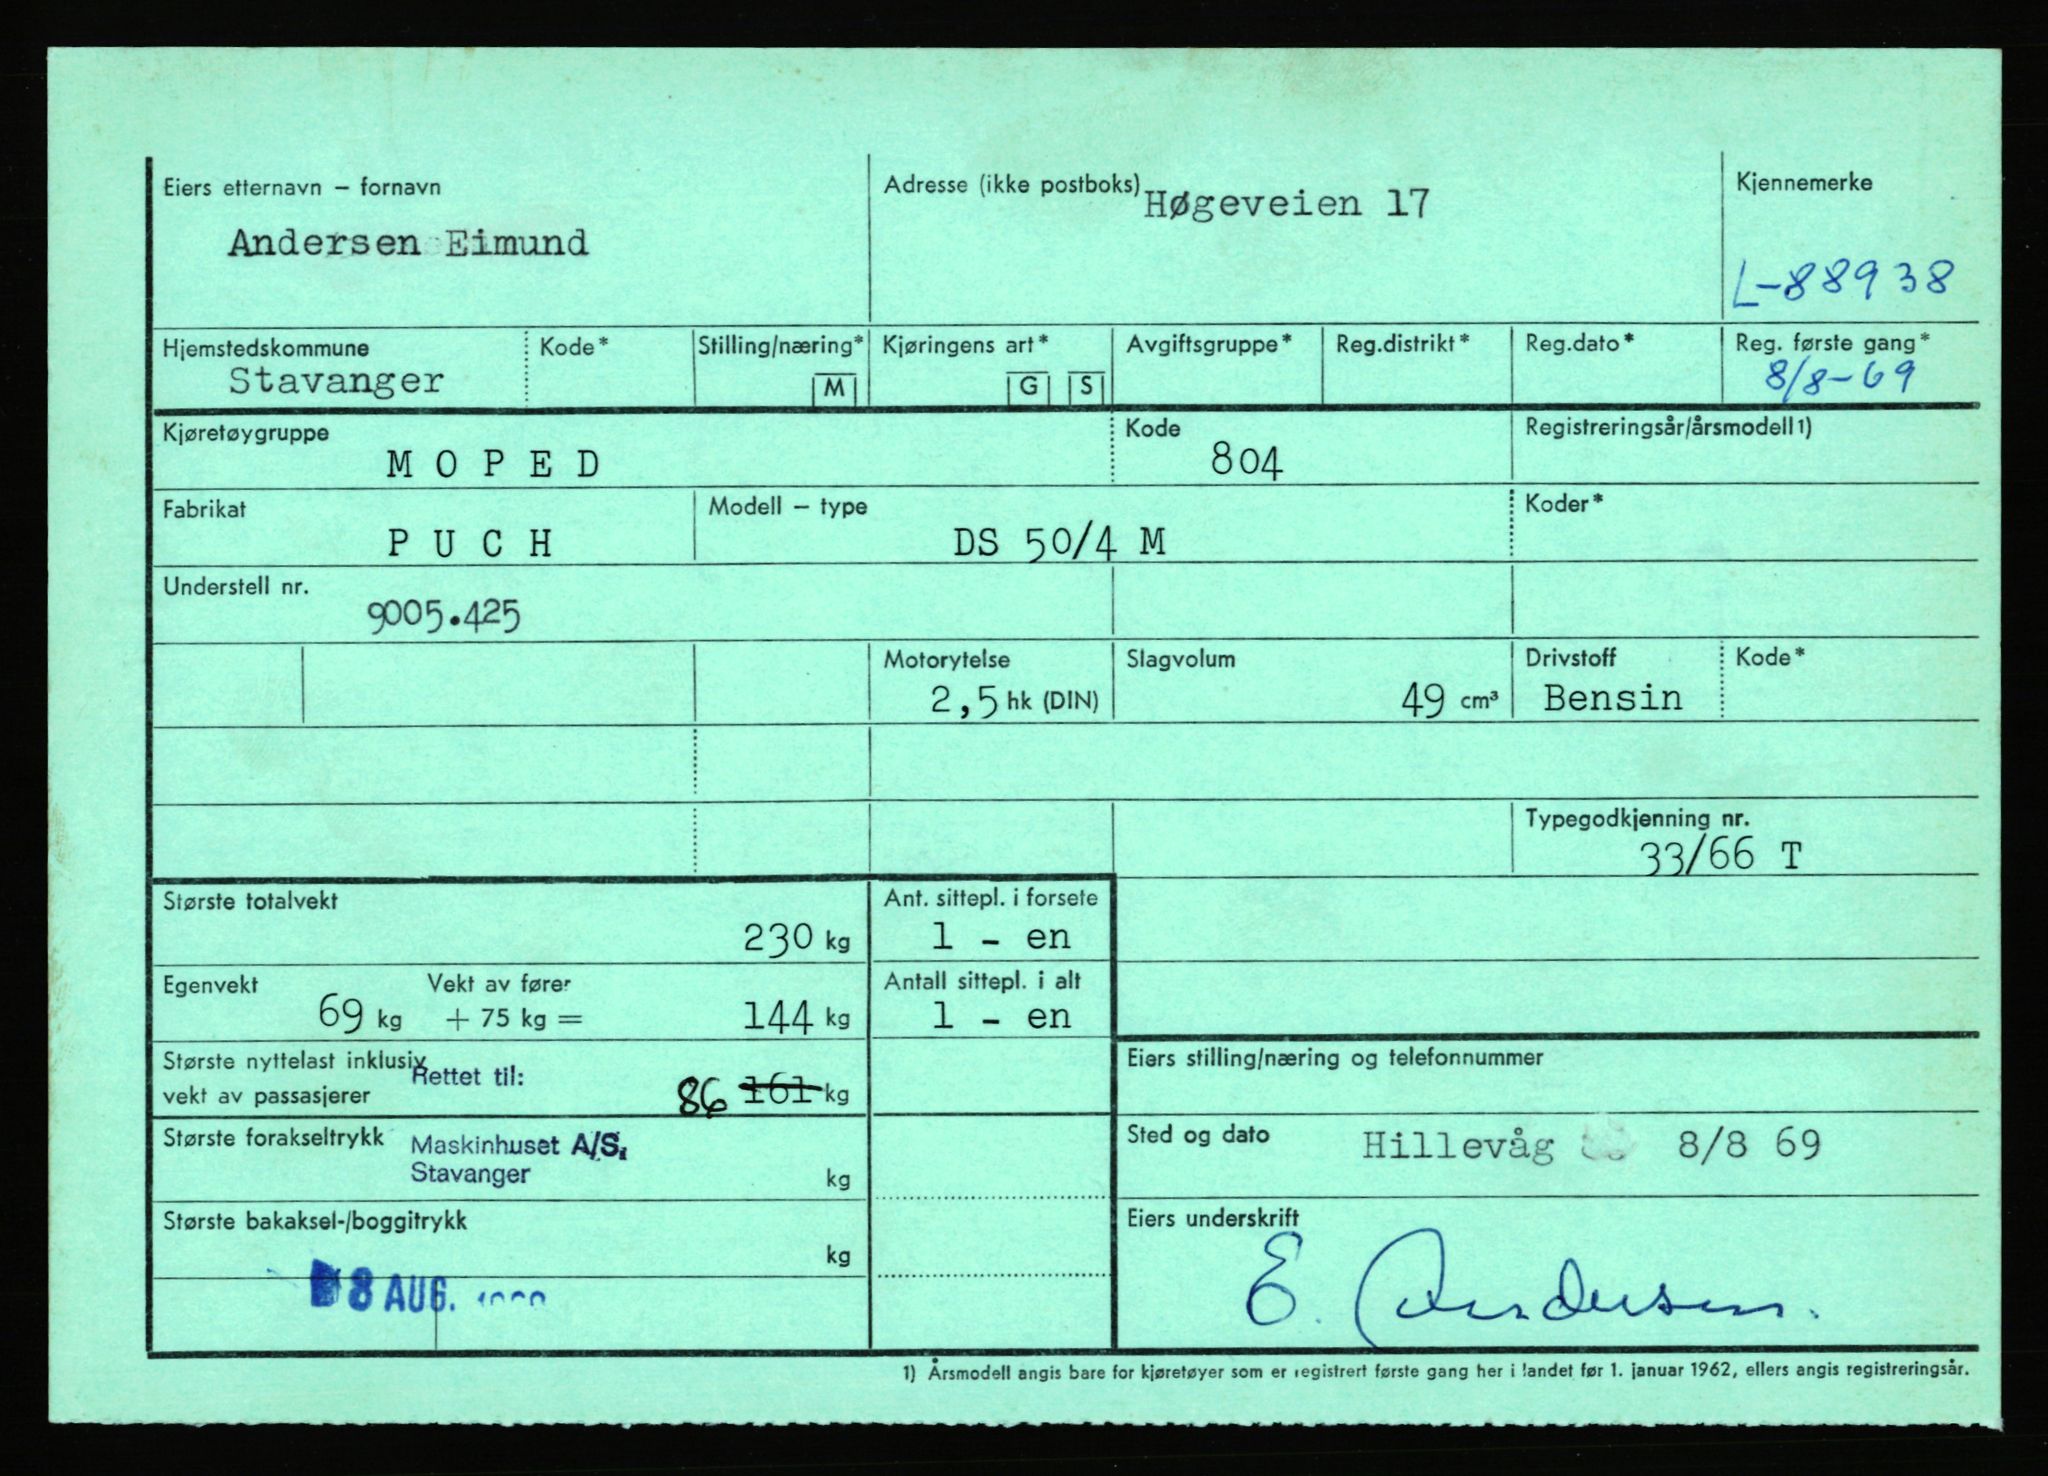 Eiers etternavn – fornavn
Andersen Eimund
Adresse (ikke postboks) Høgeveien 17
Kjennemerke
L-88938
Hjemstedskommune
Stavanger
Kode*
Stilling/næring*
M
Kjøringens art*
G S
Avgiftsgruppe*
Reg.distrikt*
Reg.dato*
Reg. første gang*
8/8-69
Kjøretøygruppe
M O P E D
Kode
804
Registreringsår/årsmodell 1)
Fabrikat
P U C H
Modell – type
DS 50/4 M
Koder*
Understell nr.
9005.425
Motorytelse
2,5 hk (DIN)
Slagvolum
49 cm³
Drivstoff
Bensin
Kode*
Typegodkjenning nr.
33/66 T
Største totalvekt
230 kg
Ant. sittepl. i forsete
1 - en
Egenvekt
69 kg
Vekt av fører
+ 75 kg =
144 kg
Antall sittepl. i alt
1 - en
Største nyttelast inklusiv
vekt av passasjerer
Rettet til:
86 161 kg
Eiers stilling/næring og telefonnummer
Største forakseltrykk
Maskinhuset A/S.
Stavanger
kg
Sted og dato
Hillevåg 8/8 69
Største bakaksel-/boggitrykk
kg
8 AUG.
Eiers underskrift
E. Andersen.
1) Årsmodell angis bare for kjøretøyer som er registrert første gang her i landet før 1. januar 1962, ellers angis registreringsår.